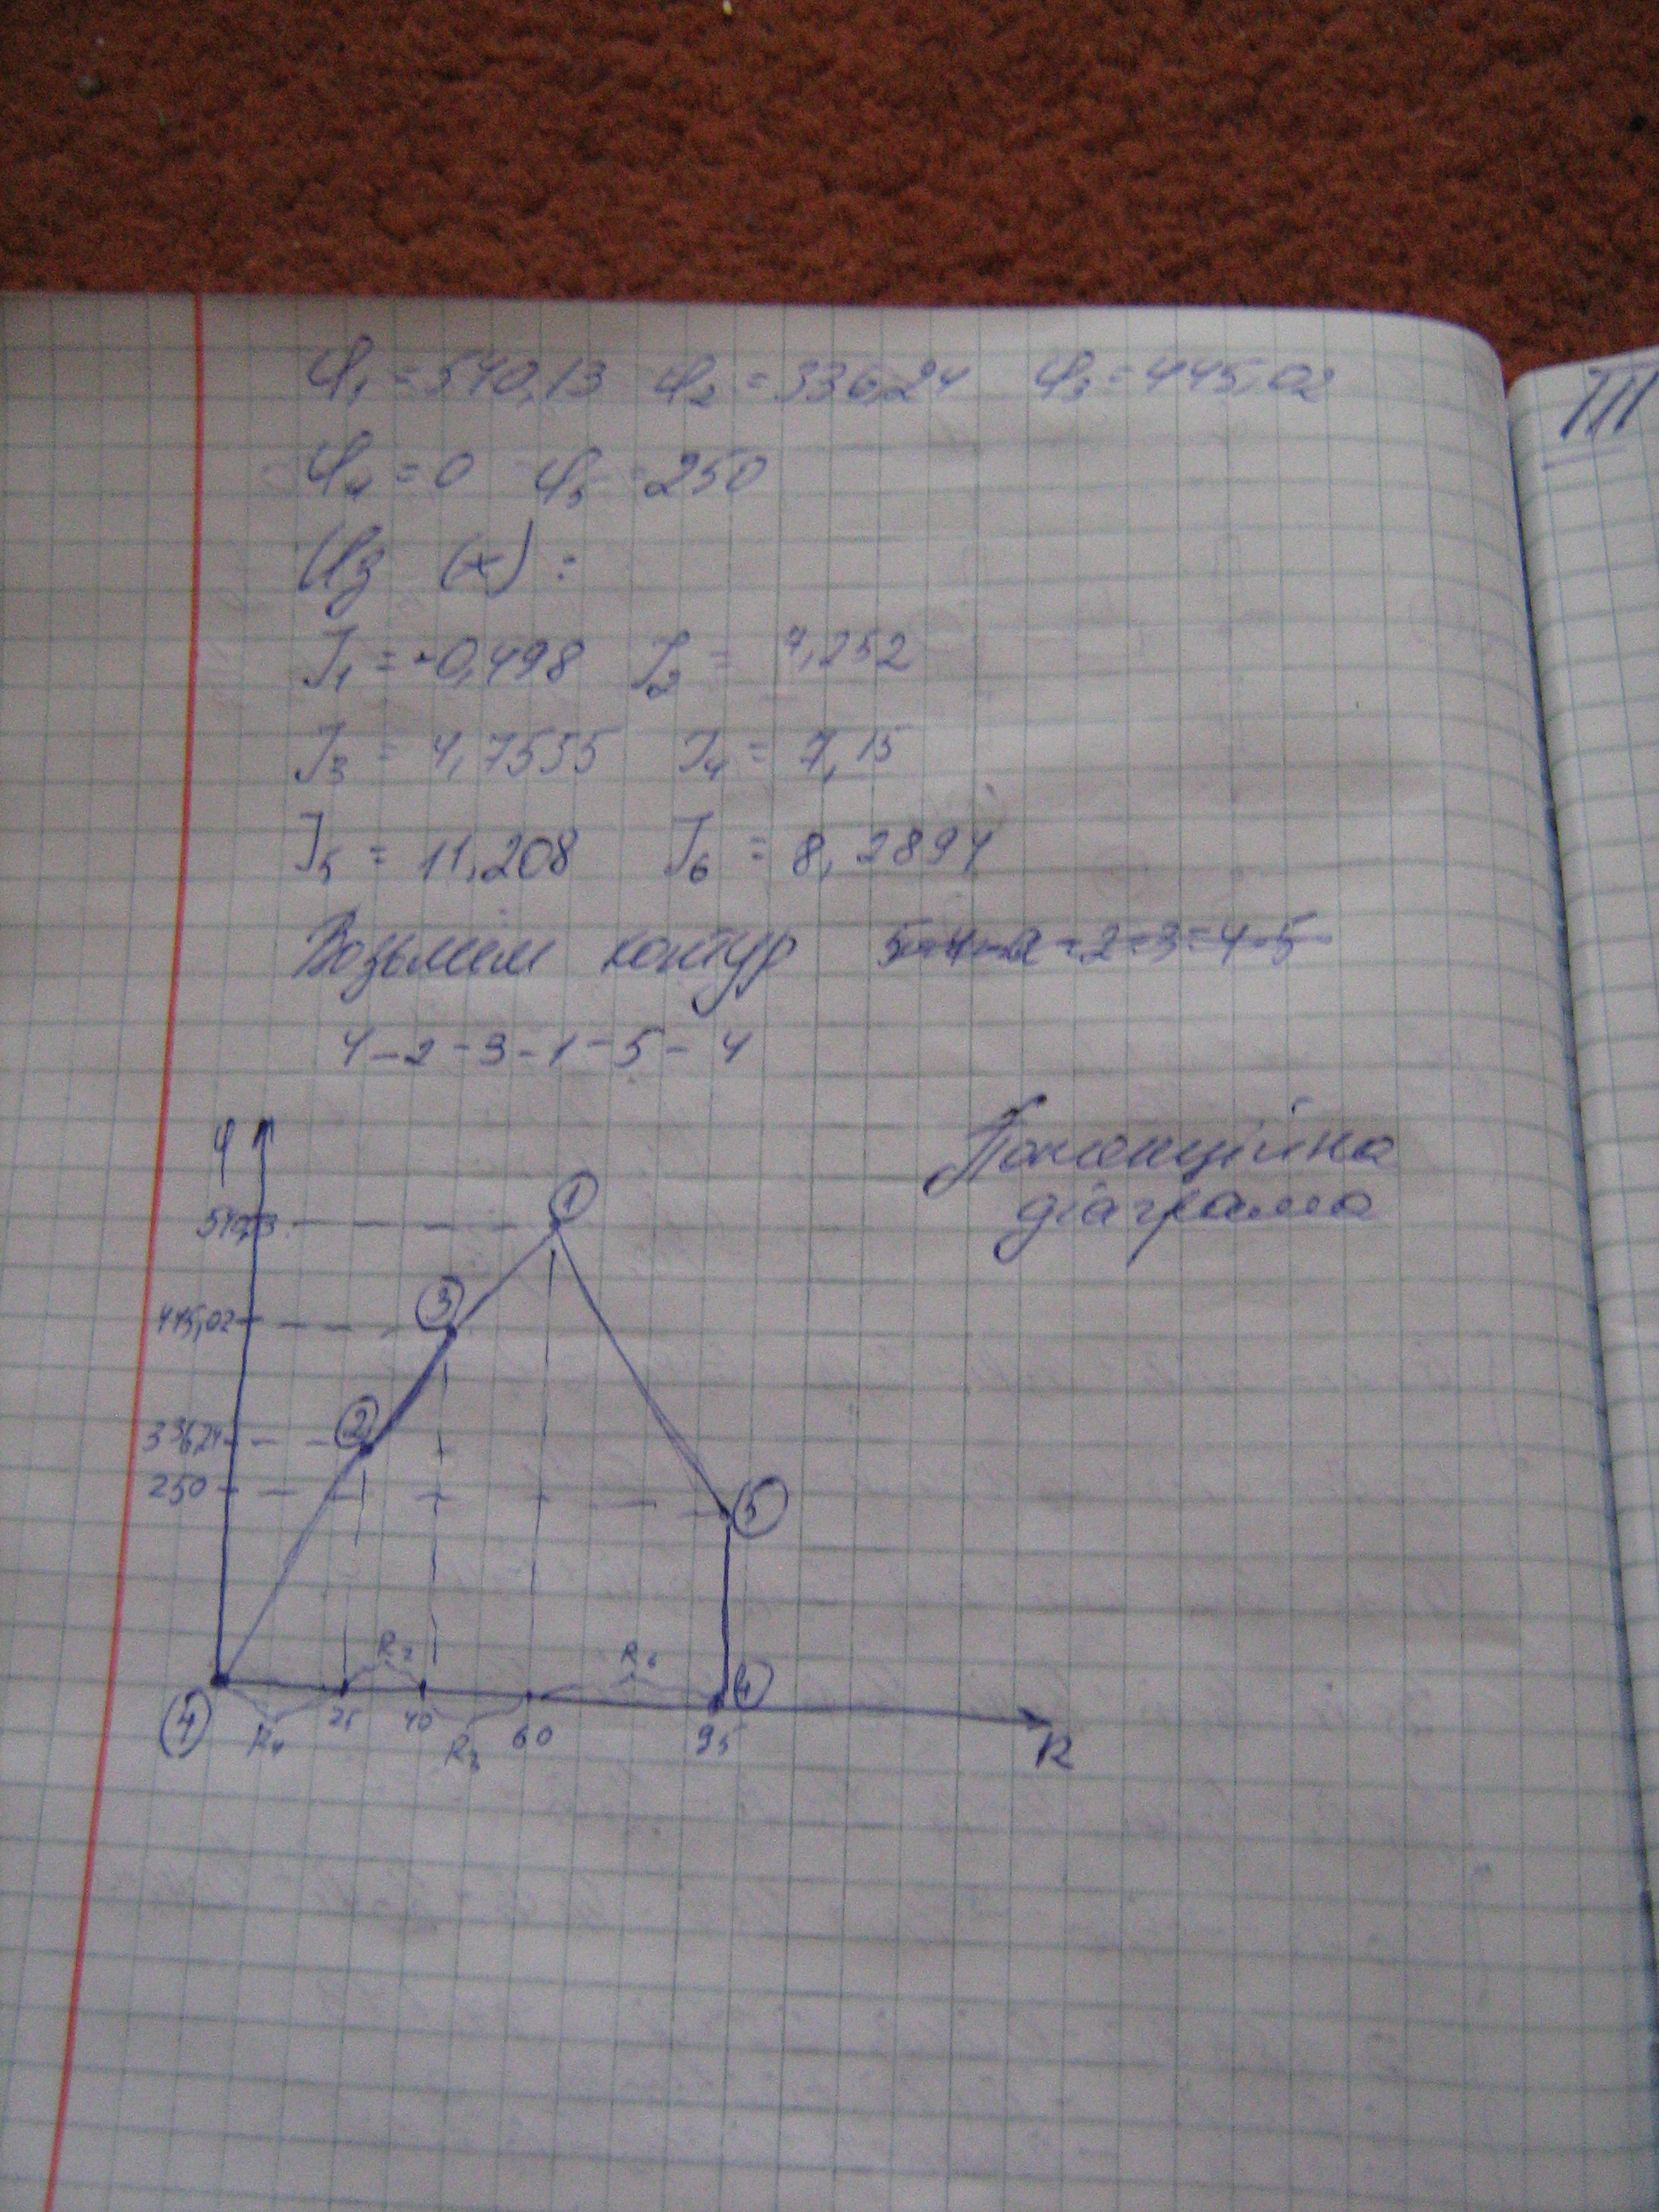 φ₁ = 540,13 φ₂ = 336,24 φ₃ = 445,02
φ₄ = 0 φ₅ = 250
Из (x) :
J₁ = -0,498 J₂ = 7,252
J₃ = 4,7555 J₄ = 7,15
J₅ = 11,208 J₆ = 8,2894
Возьмем контур
4-2-3-1-5-4
Потенційна
діаграма
φ
540,13
445,02
336,24
250
1
3
2
5
R₂ R₆
4 4
25 40 60 95
R₄ R₃
R
III